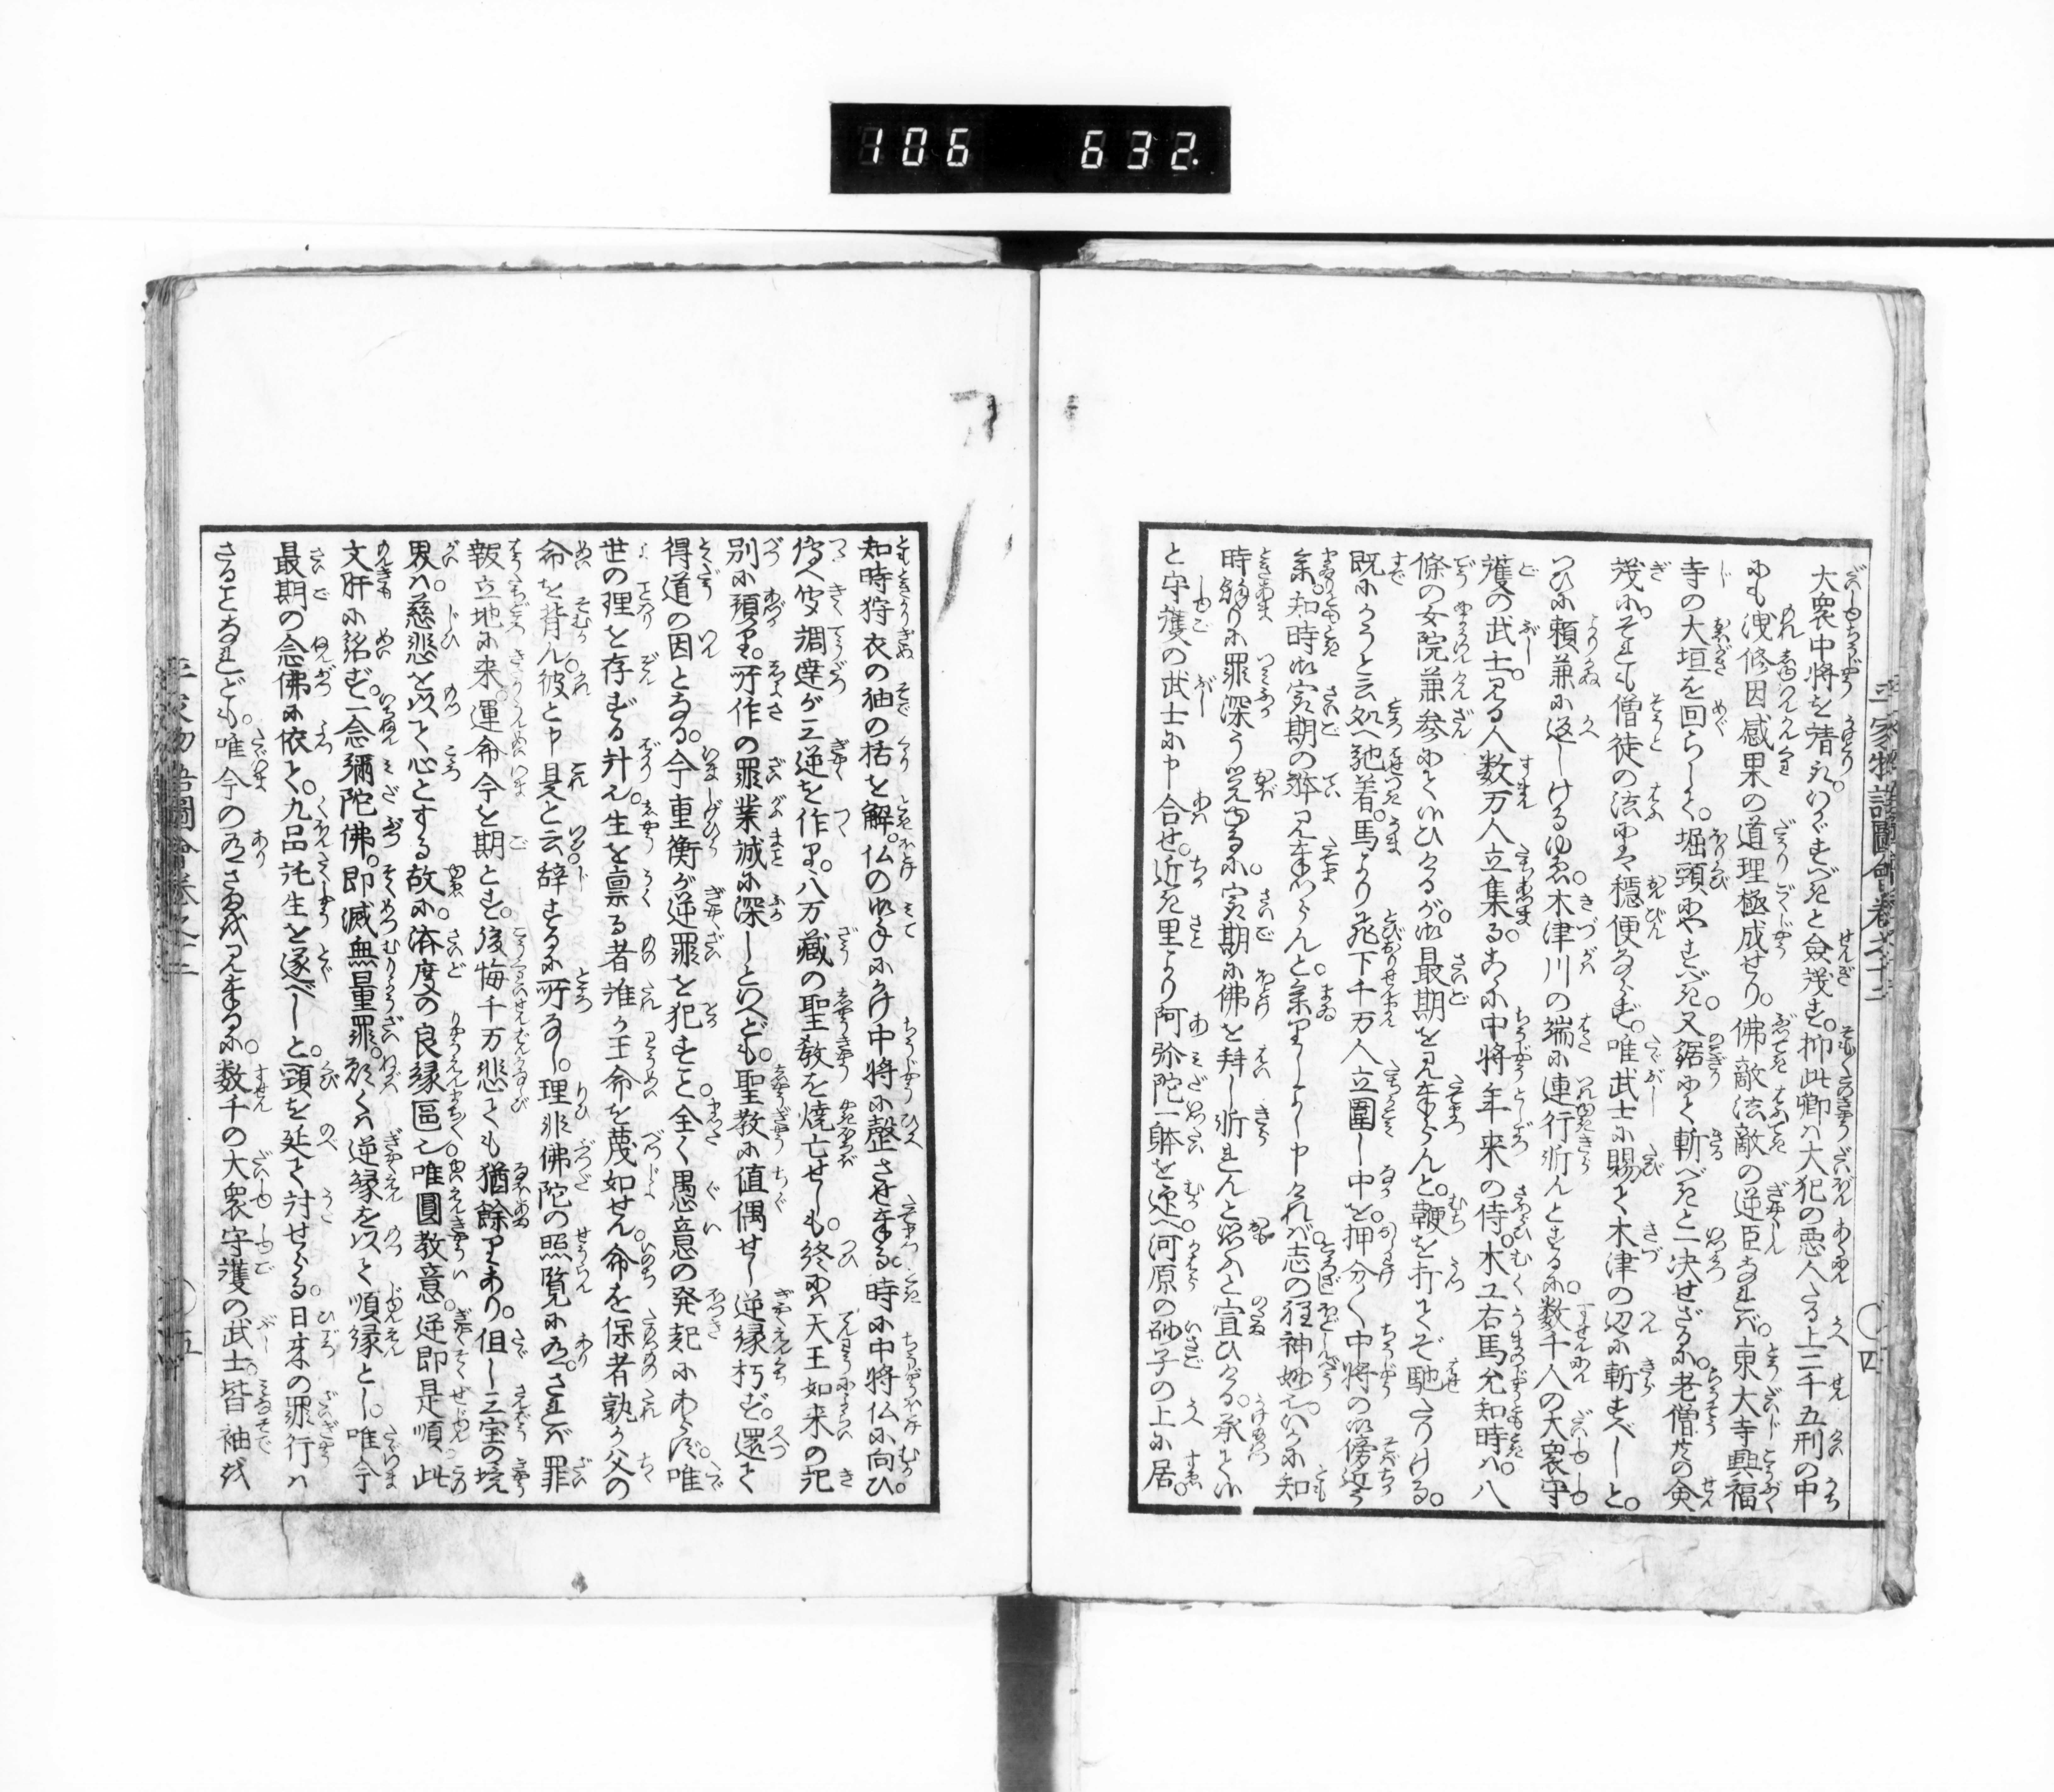 106 632.
平家物語圖會卷之十二 〇四
大衆中將を請取いかゞすべきと僉議す。抑此卿ハ大犯の悪人たる上三千五刑の中
にも洩修因感果の道理極成せり。佛敵法敵の逆臣なれバ。東大寺興福
寺の大垣を回らして。堀頸にやすべき。又鋸にて斬べきと一决せざるに。老僧共の僉
議に。それも僧徒の法に穏便ならず。唯武士に賜て木津の辺に斬すべしと。
つひに頼兼に返しけるゆゑ。木津川の端に連行斬んとするに。数千人の大衆守
護の武士。見る人数万人立集る。こゝに中将年来の侍。木工右馬允知時ハ。八
條の女院兼参にて候ひけるが。御最期を見奉らんと。鞭を打てぞ馳たりける。
既にかうと云処へ馳着。馬より飛下千万人立圍し中を。押分て中将の御傍近う
参。知時御最期の躰見奉らんと。参りしよし申ければ。志の程神妙也。いかに知
時餘りに罪深う覚ゆるに。最期に佛を拜し斬れんと思ふと宣ひける。承て候
と守護の武士に申合せ。近き里より阿弥陀一躰を迎へ。河原の砂子の上に居。
知時狩衣の袖の括を解。仏の御手にかけ中将に扣させ奉る。時に中将仏に向ひ。
傳へ聞調達が三逆を作り。八万藏の聖教を燒亡せしも。終にハ天王如来の記
別に預り。所作の罪業誠に深しといへども。聖教に値偶せし逆縁朽ず。還て
得道の因となる。今重衡が逆罪を犯すこと全く愚意の発起にあらず。唯
世の理を存ずる斗也。生を禀る者誰か王命を蔑如せん。命を保者孰か父の
命を背ん。彼と申是と云辞するに所なし。理非佛陀の照覧に在。されバ罪
報立地に来。運命今を期とす。後悔千万悲ても猶餘りあり。但し三宝の境
界ハ慈悲を以て心とする故に。済度の良縁區也。唯圓教意逆即是順此
文肝に銘ず。一念彌陀佛。即滅無量罪。願くハ逆縁を以て順縁とし。唯今
最期の念佛に依て。九品託生を遂べしと。頸を延て討せらる。日来の罪行ハ
さることなれども。唯今の在さまを見奉るに。数千の大衆守護の武士。皆袖を
平家物語圖會卷之十二 〇五